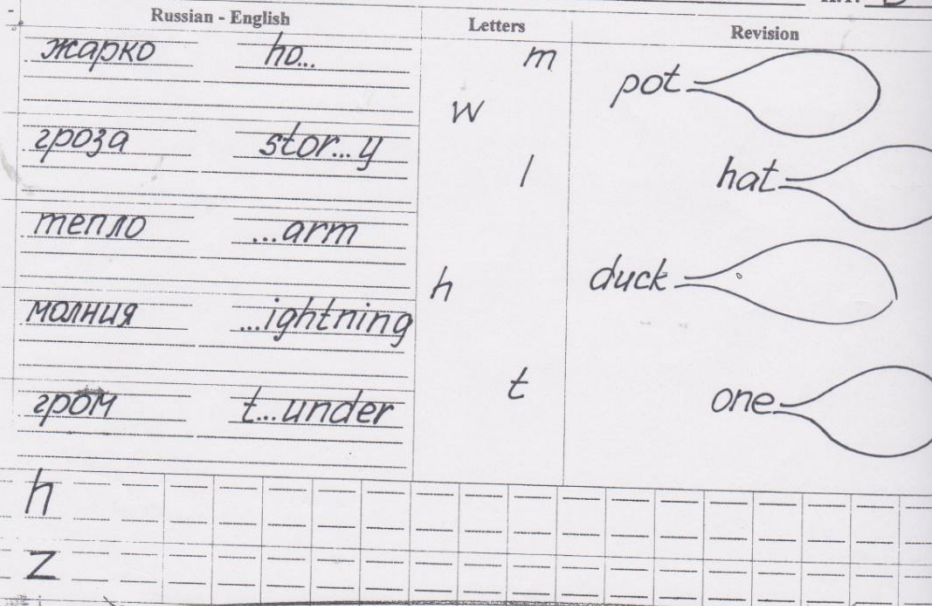 Russian - English Letters Revision
жарко ho... m pot
w
гроза stor...y
l hat
тепло ...arm
h duck
молния ...ightning
t one
гром t...under
h
z